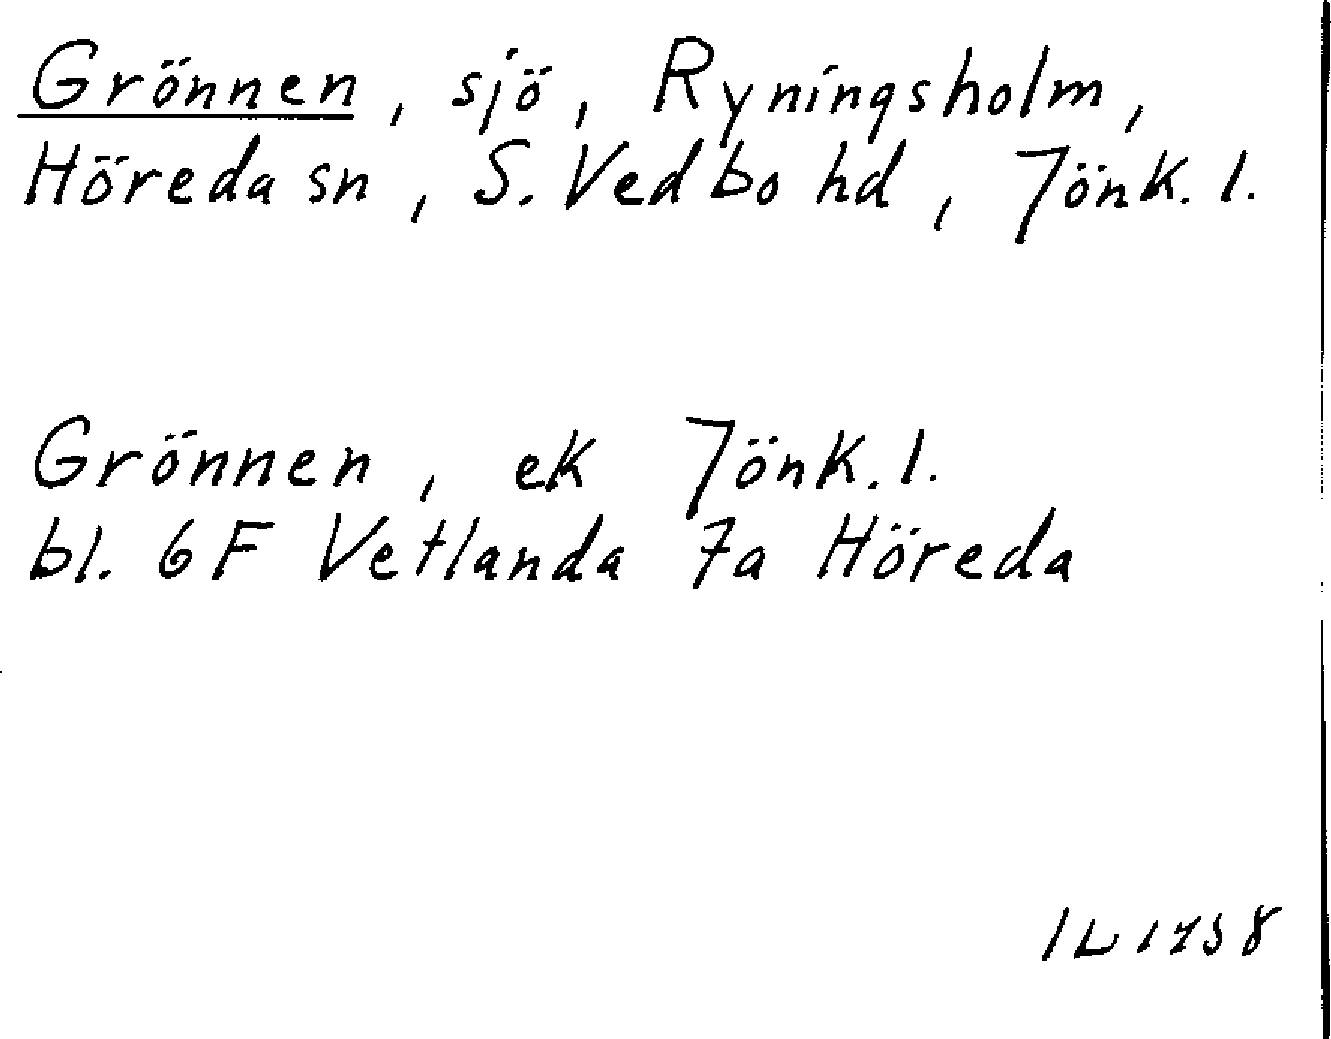 Grönnen, sjö, Ryningsholm,
Höreda sn, S. Vedbo hd, Jönk. l.
Grönnen, ek Jönk. l.
bl. 6 F Vetlanda 7a Höreda